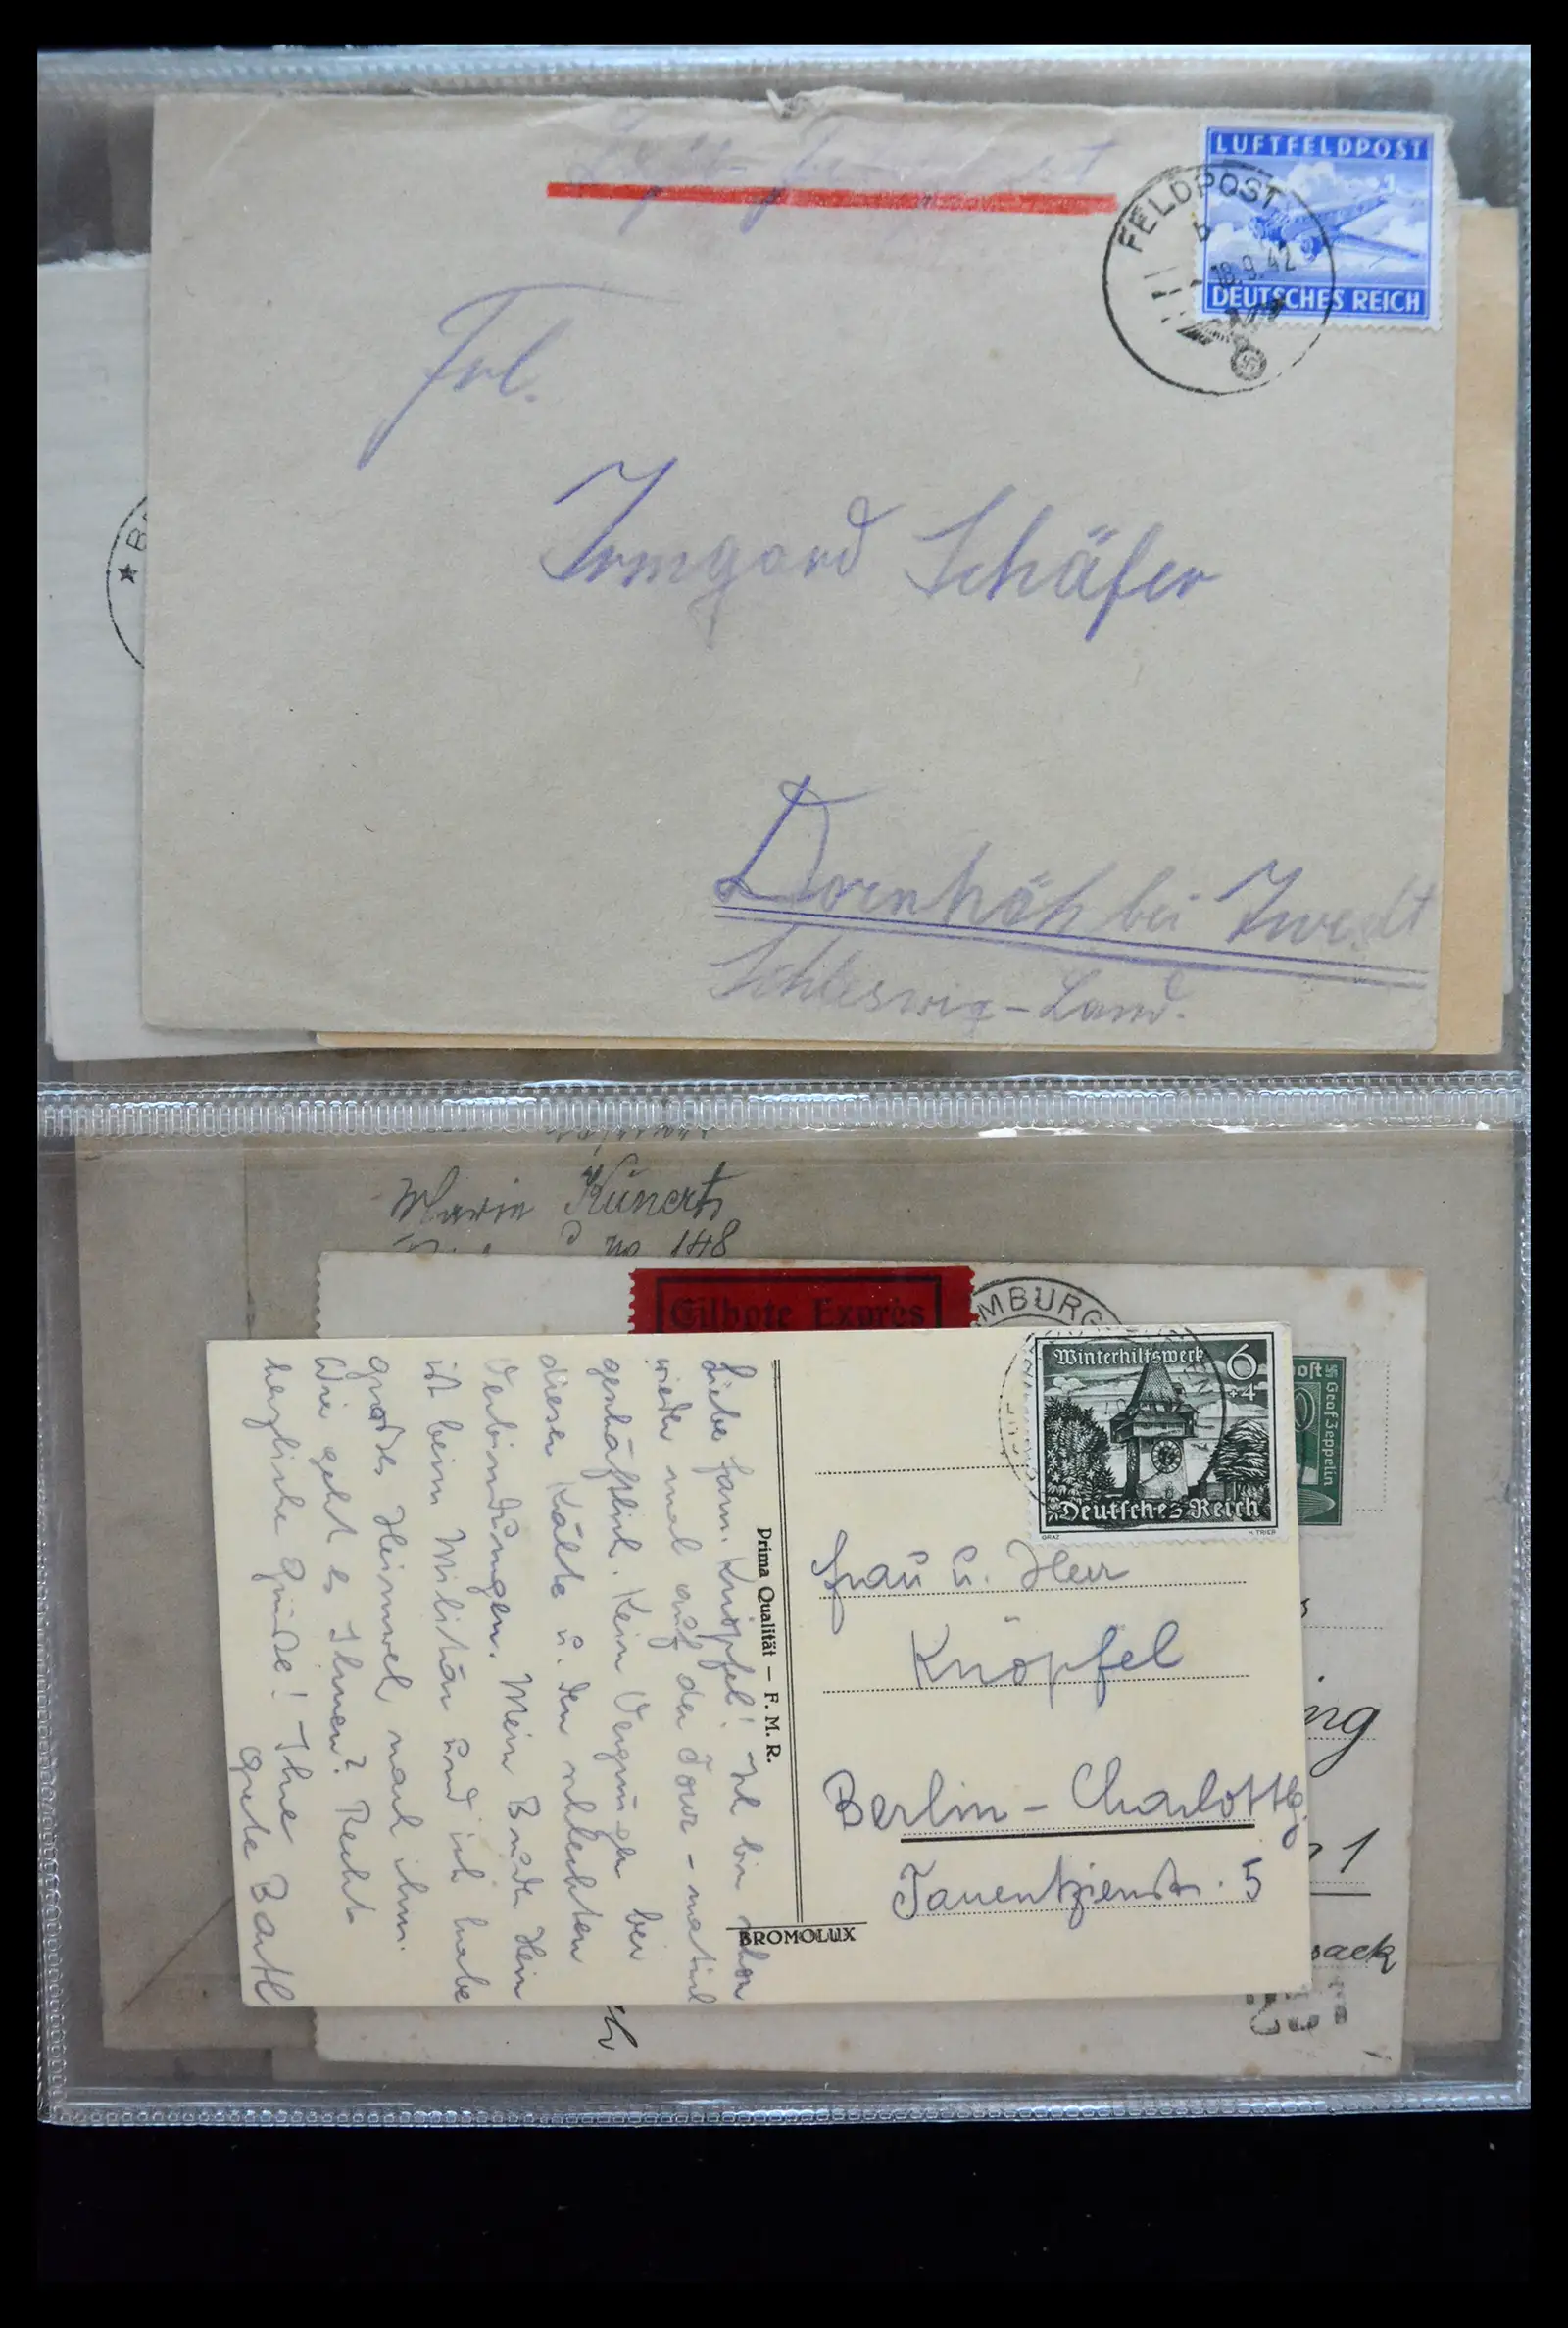 Luft-Feldpost
LUFTFELDPOST
DEUTSCHES REICH
FELDPOST
b
18.9.42
Frl.
Irmgard Schäfer
Dornhöh bei Twedt
Schleswig-Land.
★ B
Marie Kunert
no 148
Eilbote Exprès
MBURG
Winterhilfswerk 6
+4
Deutsches Reich
GRAZ H. TRIER
ost
Graf Zeppelin
Liebe Fam. Knöpfel! Ich bin schon
wieder mal auf der Tour - natürl
geschäftlich. Kein Vergnügen bei
dieser Kälte u. den schlechten
Verbindungen. Mein Bruder Hein
ist beim Militär und ich habe
großes Heimweh nach ihm.
Wie geht es Ihnen? Recht
herzliche Grüße! Ihre
Grete Bartl
Prima Qualität – F. M. R.
BROMOLUX
Frau u. Herr
Knöpfel
Berlin - Charlottbg.
Tauentzienstr. 5
ing
1
sack